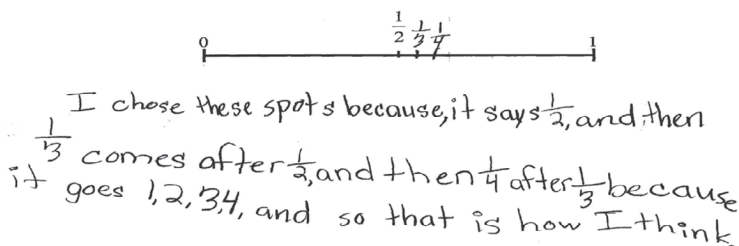 0 1/2 1/3 1/4 1
I chose these spots because, it says 1/2, and then
1/3 comes after 1/2, and then 1/4 after 1/3 because
it goes 1,2,3,4, and so that is how I think.